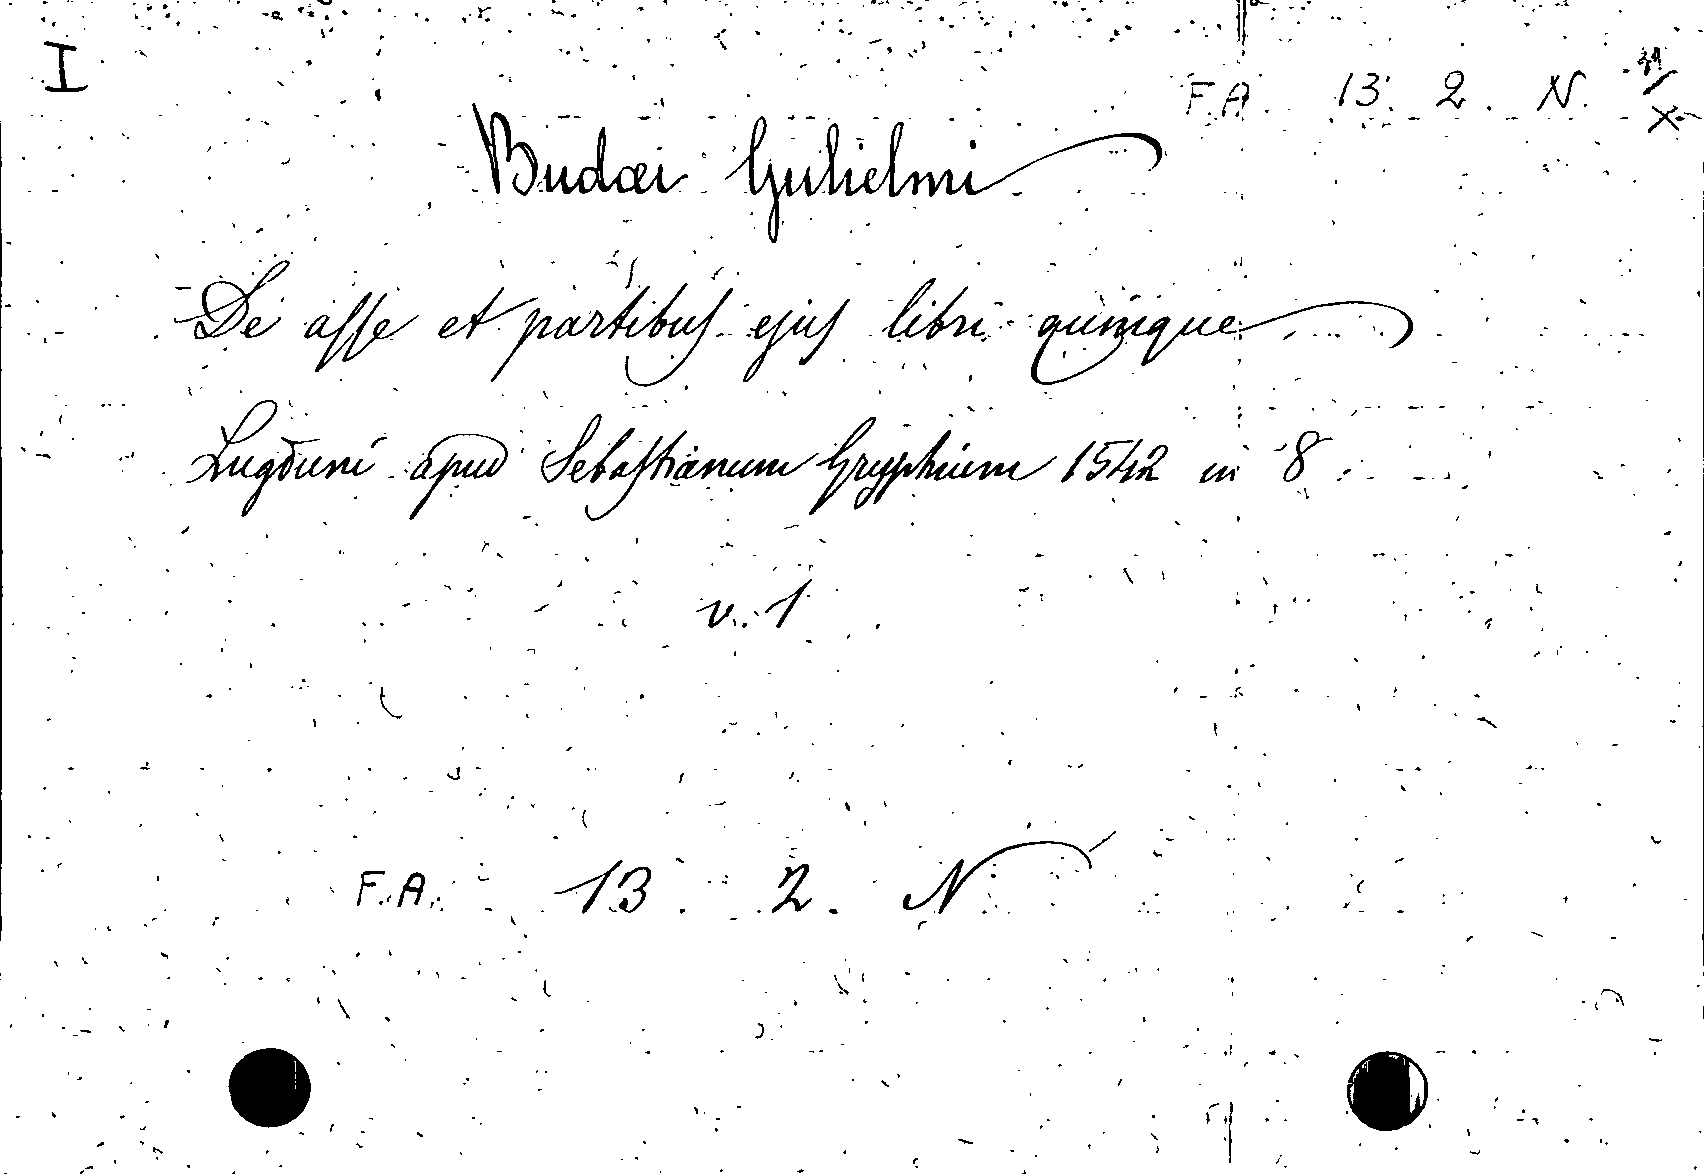 I
F. A. 13. 2. N.
Budæi Gulielmi
De asse et partibus ejus libri quinque
Lugduni apud Sebastianum Gryphium 1542 in 8
v. 1
F. A. 13 2. N